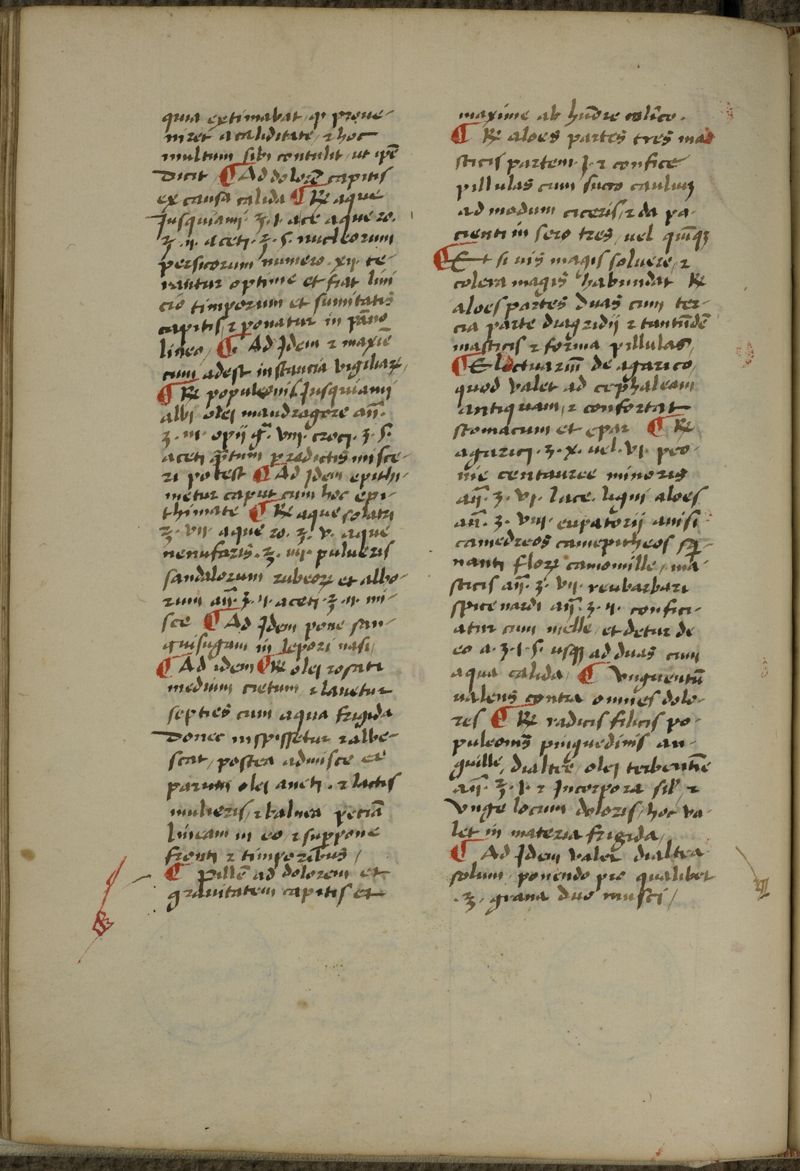 quia extimabat qͥ proue-
niret a caliditate / ⁊ hoc
multum sibi contulit / ut ip̄e
Dicit / ¶ Ad doloꝝ capitis
ex causa calida ¶ ℞ aque
Jusquiami . ʒ . j . ace aque ro .
ʒ . ij . aceti . ʒ . s . nucleorum
persicorum numero . xij . te-
rantur optime et fiat lini
cio timporum et sumitatis
capitis ⁊ ponatur in pāno
lineo / ¶ Ad Jdem ⁊ maxīe
cum adest instancia vigiliaꝝ /
¶ ℞ populeonis Jusquiamij
albi olei mandragore an̄ .
ʒ . iij . opij gͬ . viij . croci . ʒ . s .
aceti q̄tum predictis misce-
ri potest ¶ Ad Jdem epithi-
metur caput cum hoc epi-
thimate ¶ ℞ aque solatri
ʒ . vij . aque ro . ʒ . v . aque
nenufaris . ʒ . iij . pulueris
sandalorum rubeoꝝ et albo-
rum an̄ . ʒ . ij . aceti . ʒ . ij . mi-
sce ¶ Ad Jdem pone san-
guisugam in lepori nasi /
¶ Ad idem ¶ ℞ olei rosati
medium cretum ⁊ lauetur
septies cum aqua frigida
Donec inspissetur ⁊ albe-
scat / postea admisce
parum olei aneti . ⁊ lactis
mulieris / ⁊ balnea peciā
lineam in eo ⁊ suppone
fronti ⁊ timporibus /
¶ pille ad dolorem et
grauitatem capitis et
maxime ab humore colico .
¶ ℞ aloes partes tres mas
sticis partem . j . ⁊ confice
pillulas cum suco caulium
ad modum ciceris / ⁊ da pa-
cienti in sero tres / uel quinqꝫ
¶ Et si uis magis soluere / ⁊
colera magis habundat ℞
aloes partes duas cum ter-
cia parte diagridij ⁊ tantūdē
masticis ⁊ forma pillulas /
¶ Electuariū de agarico /
quod valet ad cephaleam
antiquam / ⁊ confortat
stomacum et epar ¶ ℞
agarici . ʒ . x . uel . vj . peo-
nie centauree minoris
an̄ . ʒ . vj . lace . ligni aloes
an̄ . ʒ . viij . eupatorij anisi
camedreos camepitheos sq̄-
nanti floꝝ camomille / ma-
sticis an̄ . ʒ . vij . reubarbari
spice nardi an̄ . ʒ . ij . confici-
atur cum melle / et detur de
eo a . ʒ . j . s . usqꝫ ad duas cum
aqua calida / ¶ Vnguentū
ualens contra omnes dolo-
res ¶ ℞ radicis filicis po-
puleonis pinguedinis an-
guille / dialtee olei terbentine
an̄ . ʒ . j . ⁊ Jncorpora siḿ ⁊
Vnge locum doloris / hoc va-
let in materia frigida /
¶ Ad Jdem valet dialtea
solum / ponendo pro qualibet
. ʒ . grana duo musci /